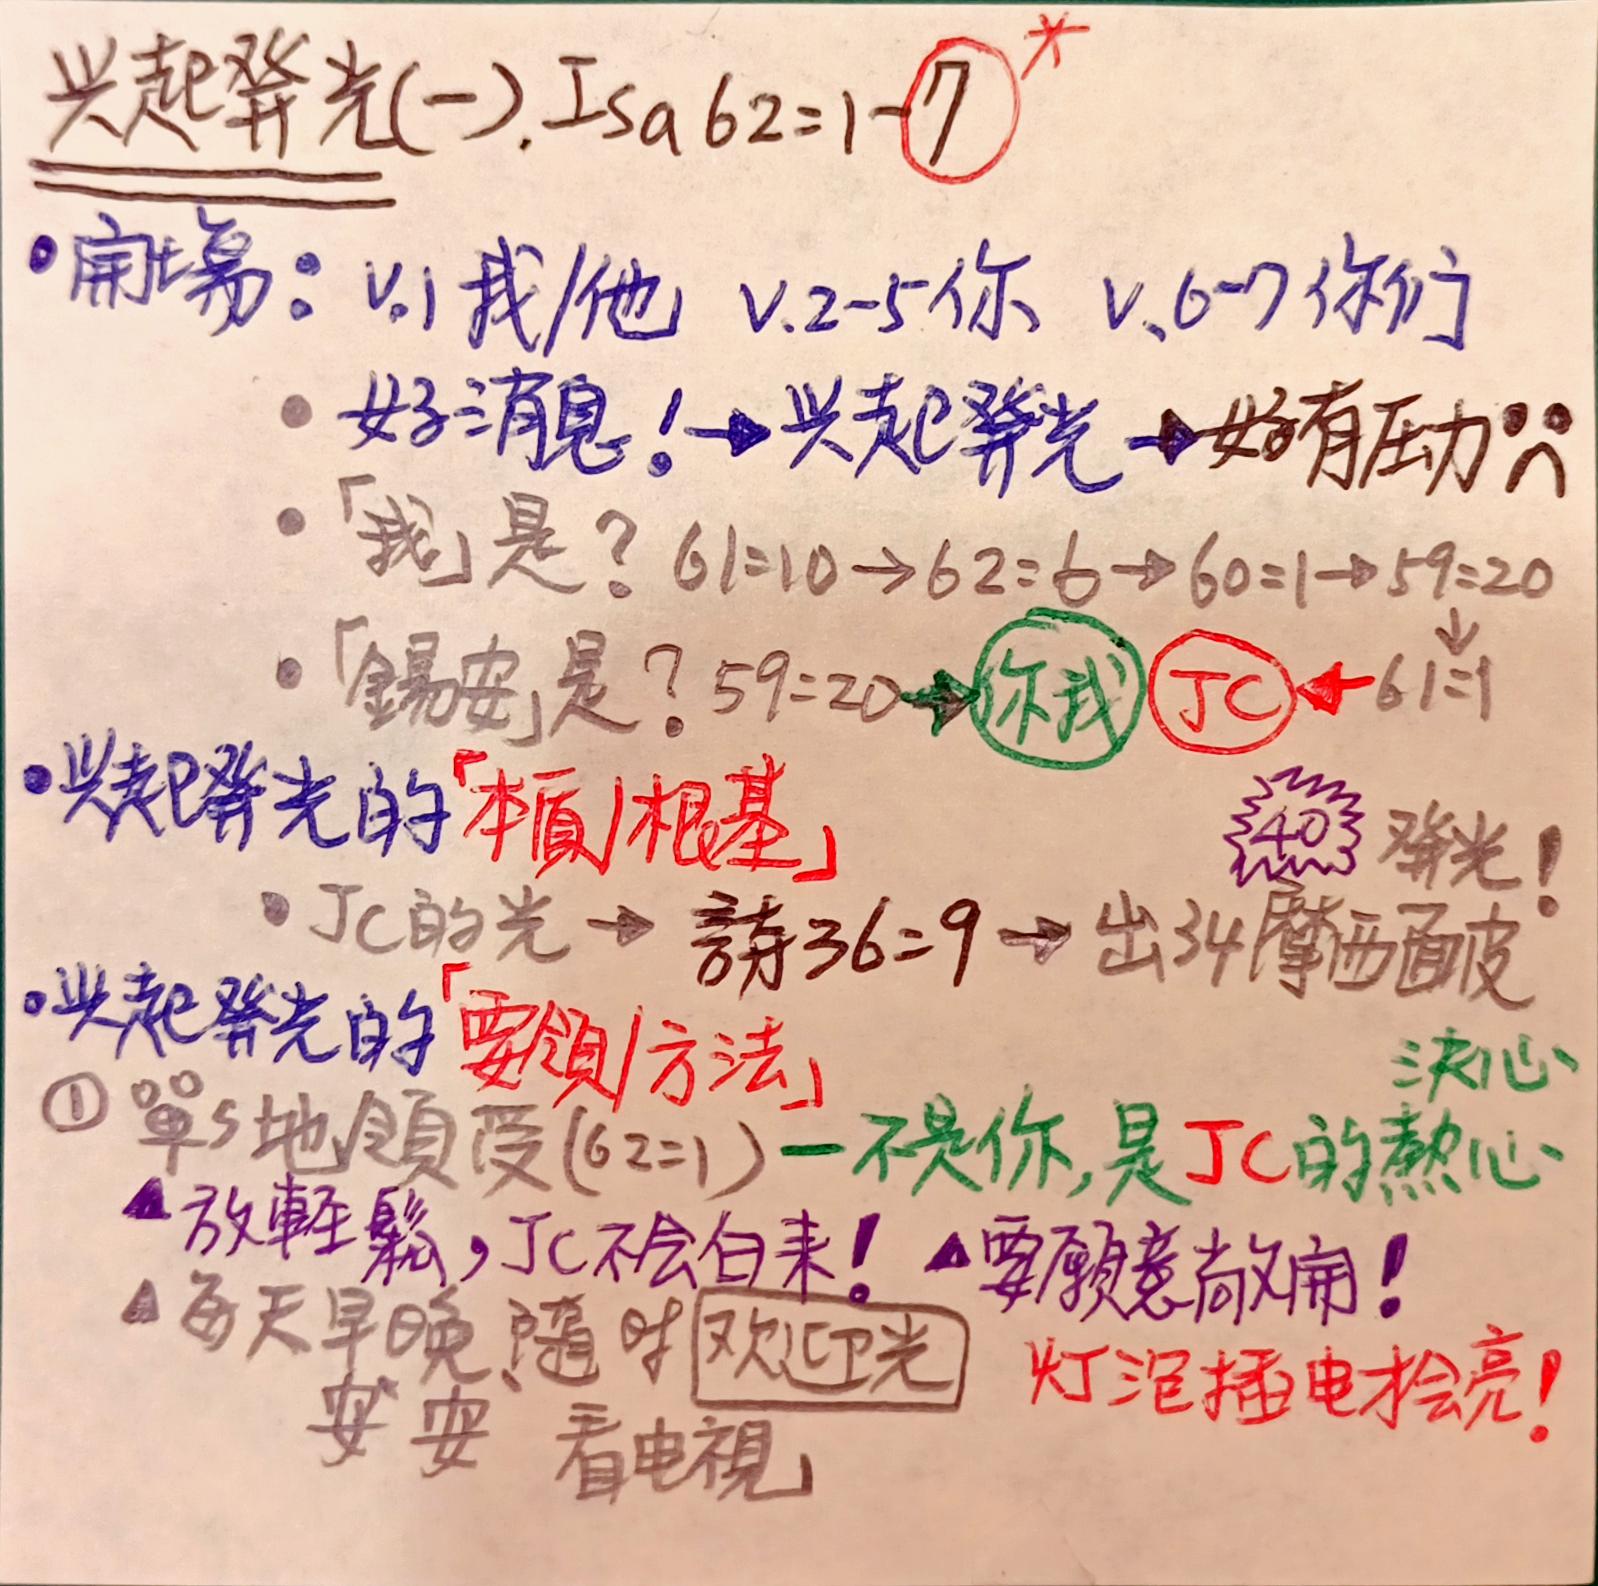 兴起發光(一). Isa 62=1-7 *
• 開場: v.1 我/他 v.2-5 你 v.6-7 你们
• 好消息! → 兴起發光 → 好有压力
• 「我」是? 61=10 → 62=6 → 60=1 → 59=20
↓
• 「錫安」是? 59=20 → 你我 JC ← 61=1
• 兴起發光的「本質/根基」
40 發光!
• JC的光 → 詩36=9 → 出34摩西面皮
• 兴起發光的「要領/方法」
決心
① 單s地領受(62=1) — 不是你, 是JC的熱心
▲ 放輕鬆, JC不会白来! ▲ 要願意敞開!
▲ 每天早晚、隨时 欢迎光
灯泡插电才会亮!
安 安 看电視」